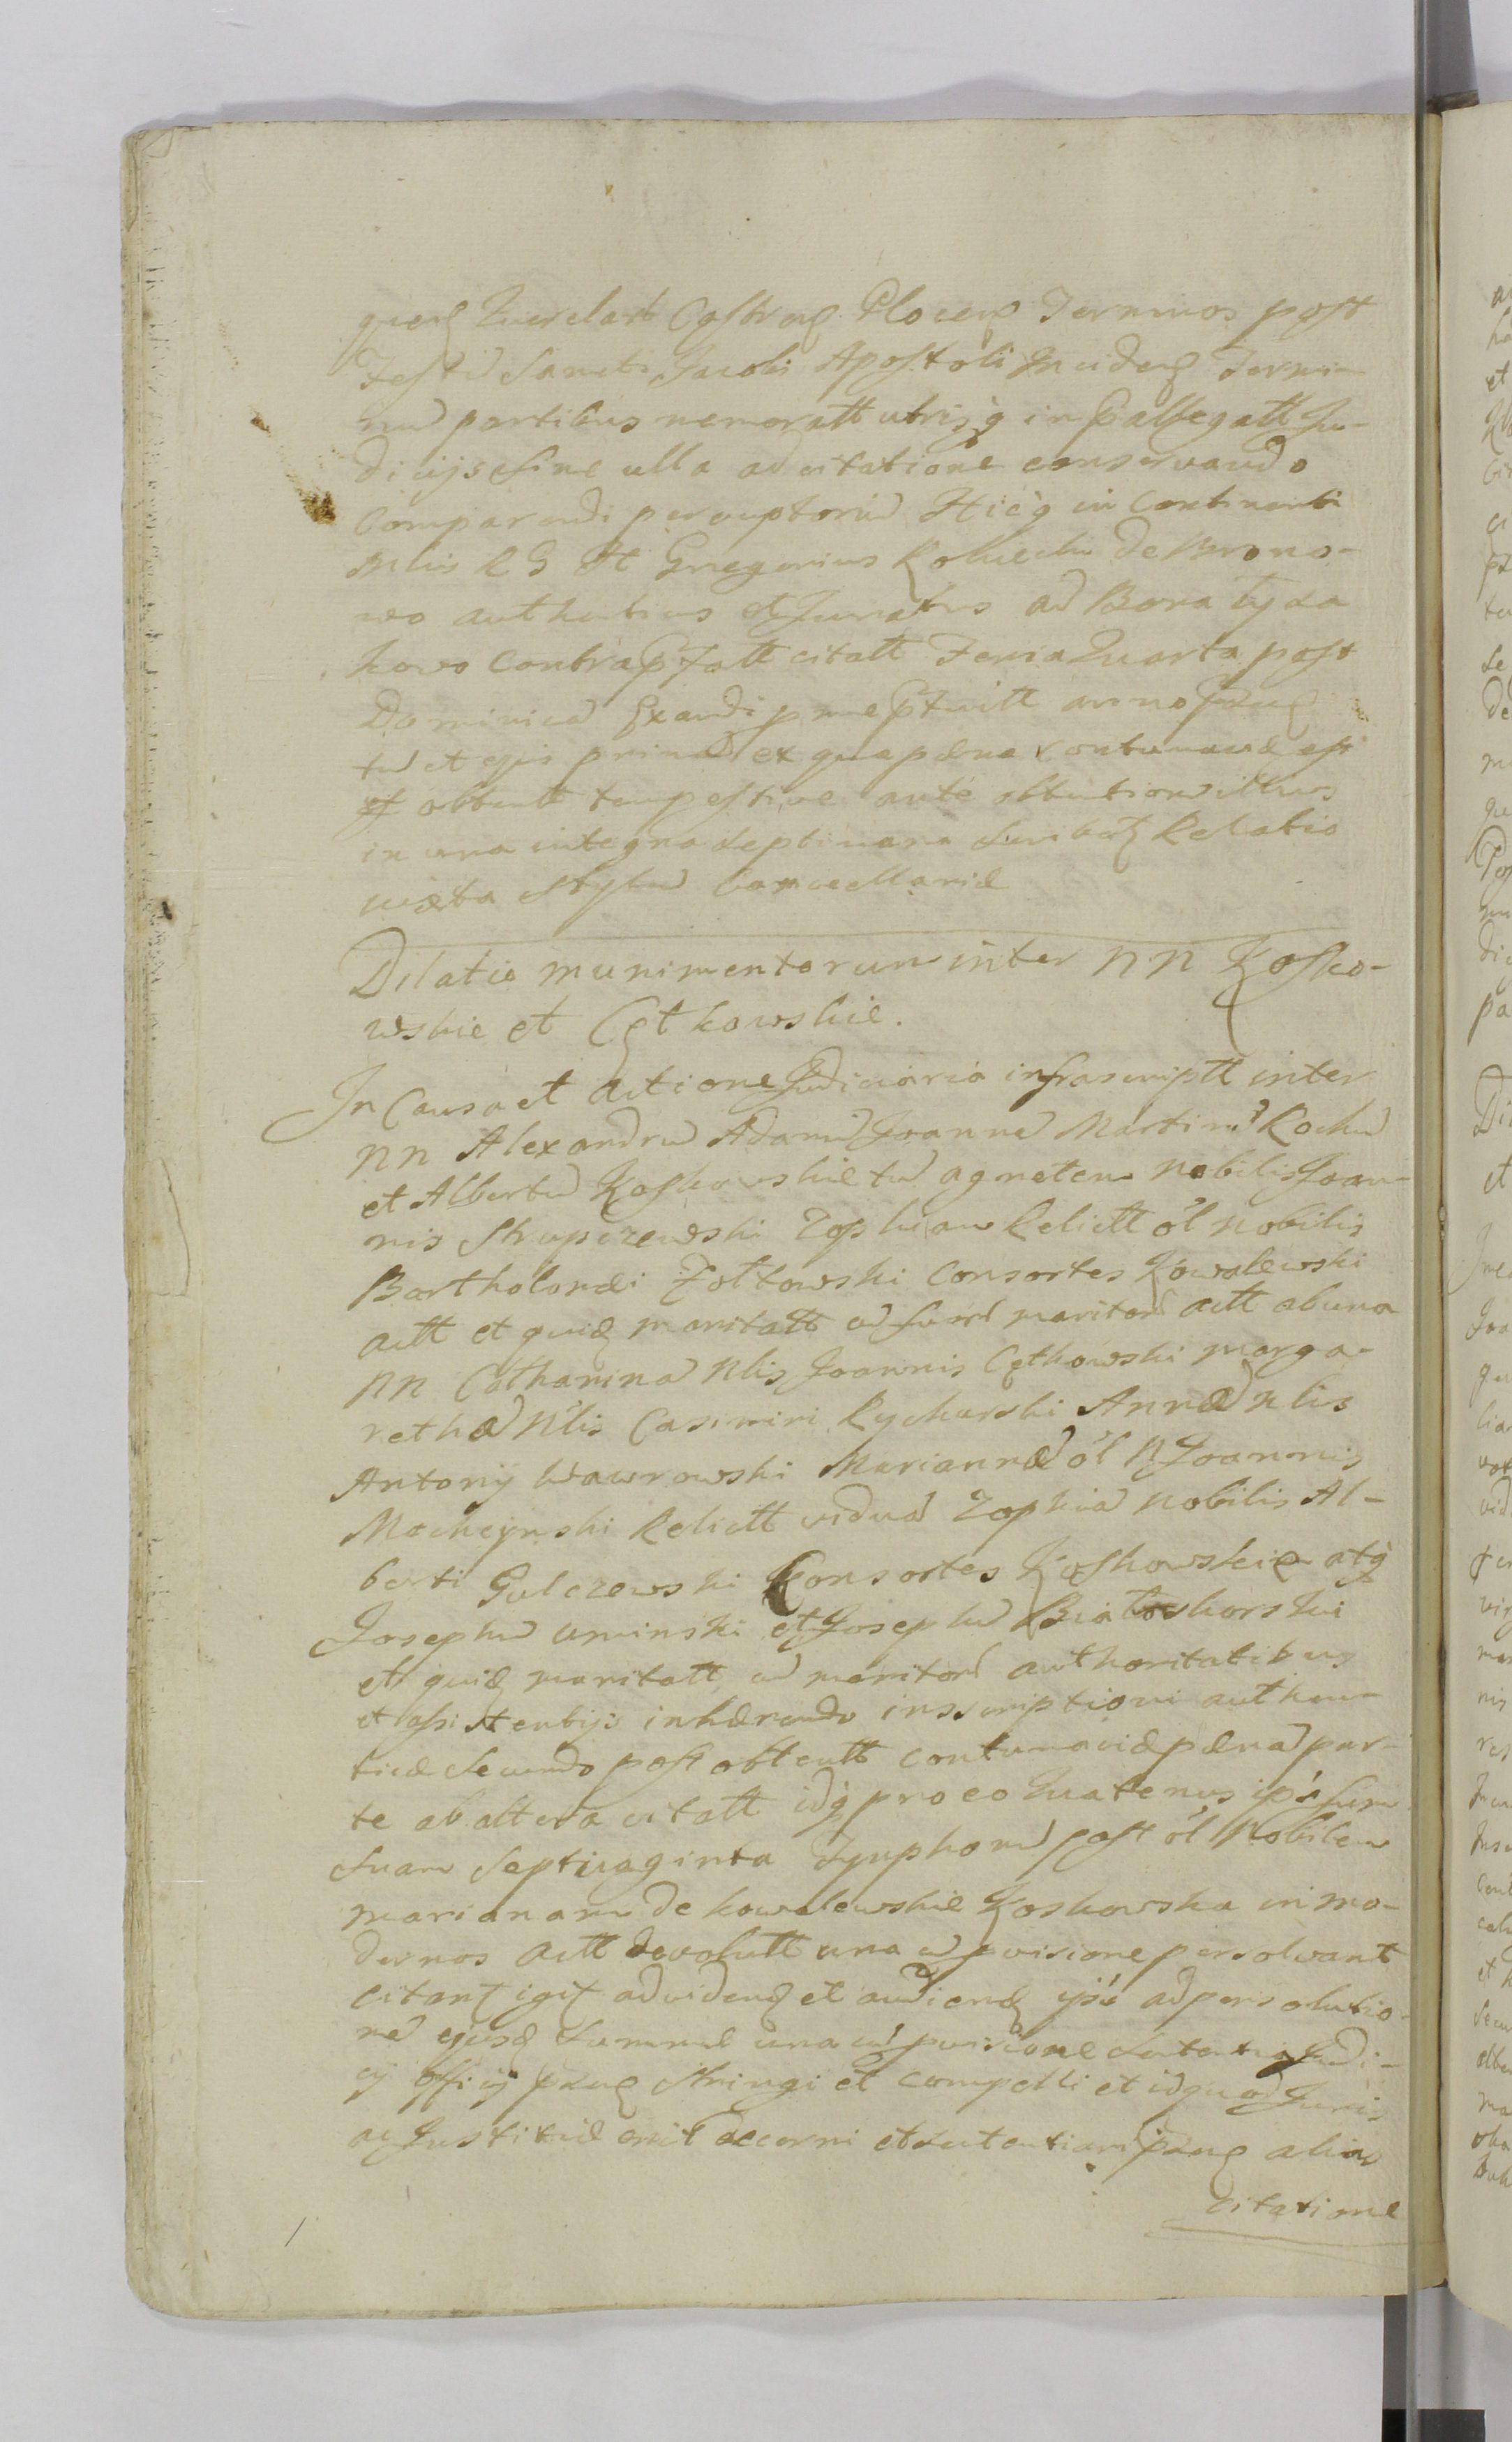 quen Querelart Castren Plocen Terminos post
Festu Sancti Jacobi Apostoli Inciden Termi-
nu partibus memoratt utrisq in pallegatt Ju-
dicijs sine ulla adcitatione conservando
Comparendi peremptoriu Hicq in Continenti
Mlis R G St Gregorius de Brono-
wo authenticus et Juratus ad Bona
kowo contra citatt Feria Quarta post
Dominica Exaudi anno
tu et ejus prima ex qua pæna contumaciæ est
obtentt tempestive ante obtentione illius
in una integra septimana Relatio
iuxta Stylu Cancellariæ
Dilatio munimentorum inter NN Kosko-
wskie et Cętkowskie.
In Causa et actione Judiciaria infrascriptt inter
NN Alexandru Adamu Joanne Martinu Rochu
et Albertu Koskowskie tu agnetem Nobilis Joan-
nis Strupczewski Zophiam Relictt ol Nobilis
Bartholomæi Żołtowski Consortes Kowalewski
actt et quid maritatt cu suor maritor actt ab una
NN Catharina Nlis Joannis Cętkowski Marga-
retha Nlis Casimiri Rycharski Anna Nlis
Antonij Wawrowski Marianna ol N Joannis
Mocheyński Relictt vidua Zophia Nobilis Al-
berti Gulczewski Consortes Koskowskie atq
Josephu Uminski et Josephu Białoskorski
et quid maritatt cu maritor authoritatibus
et assistentijs inhærendo inscriptioni authen-
ticæ Secundo post obtentt contumaciæ pæna par-
te ab altera citatt idq pro eo Quatenus ipsi sum
Suam Septuaginta Tynphor post ol Nobilem
Marianam de Kowalewskie Koskowska in mo-
dernos actt devolutt una cu pvisione persolvant
citant igit ad viden et audien ipsi ad persolutio-
ne ejusd Summæ una cu pvisione Judi-
cij officij stringi et compelli et id quod Juris
ac Justitiæ erit decerni et sententiam alias
citatione